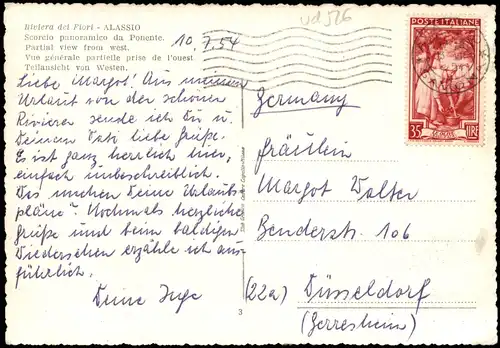 Riviera dei Fiori - ALASSIO
Scorcio panoramico da Ponente.
Partial view from west.
Vue générale partielle prise de l'ouest
Teilansicht von Westen.
10.7.54
POSTE ITALIANE
35 LIRE
Liebe Margot! Aus meinem
Urlaub von der schönen
Riviera sende ich Dir u.
Deinem Vati liebe Grüße.
Es ist ganz herrlich hier,
einfach unbeschreiblich.
Was machen Deine Urlaubs-
pläne? Nochmals herzliche
Grüße und beim baldigen
Wiedersehen erzähle ich aus-
führlich.
Deine Inge
Germany
Fräulein
Margot Walter
Benderstr. 106
(22a) Düsseldorf
(Gerresheim)
3